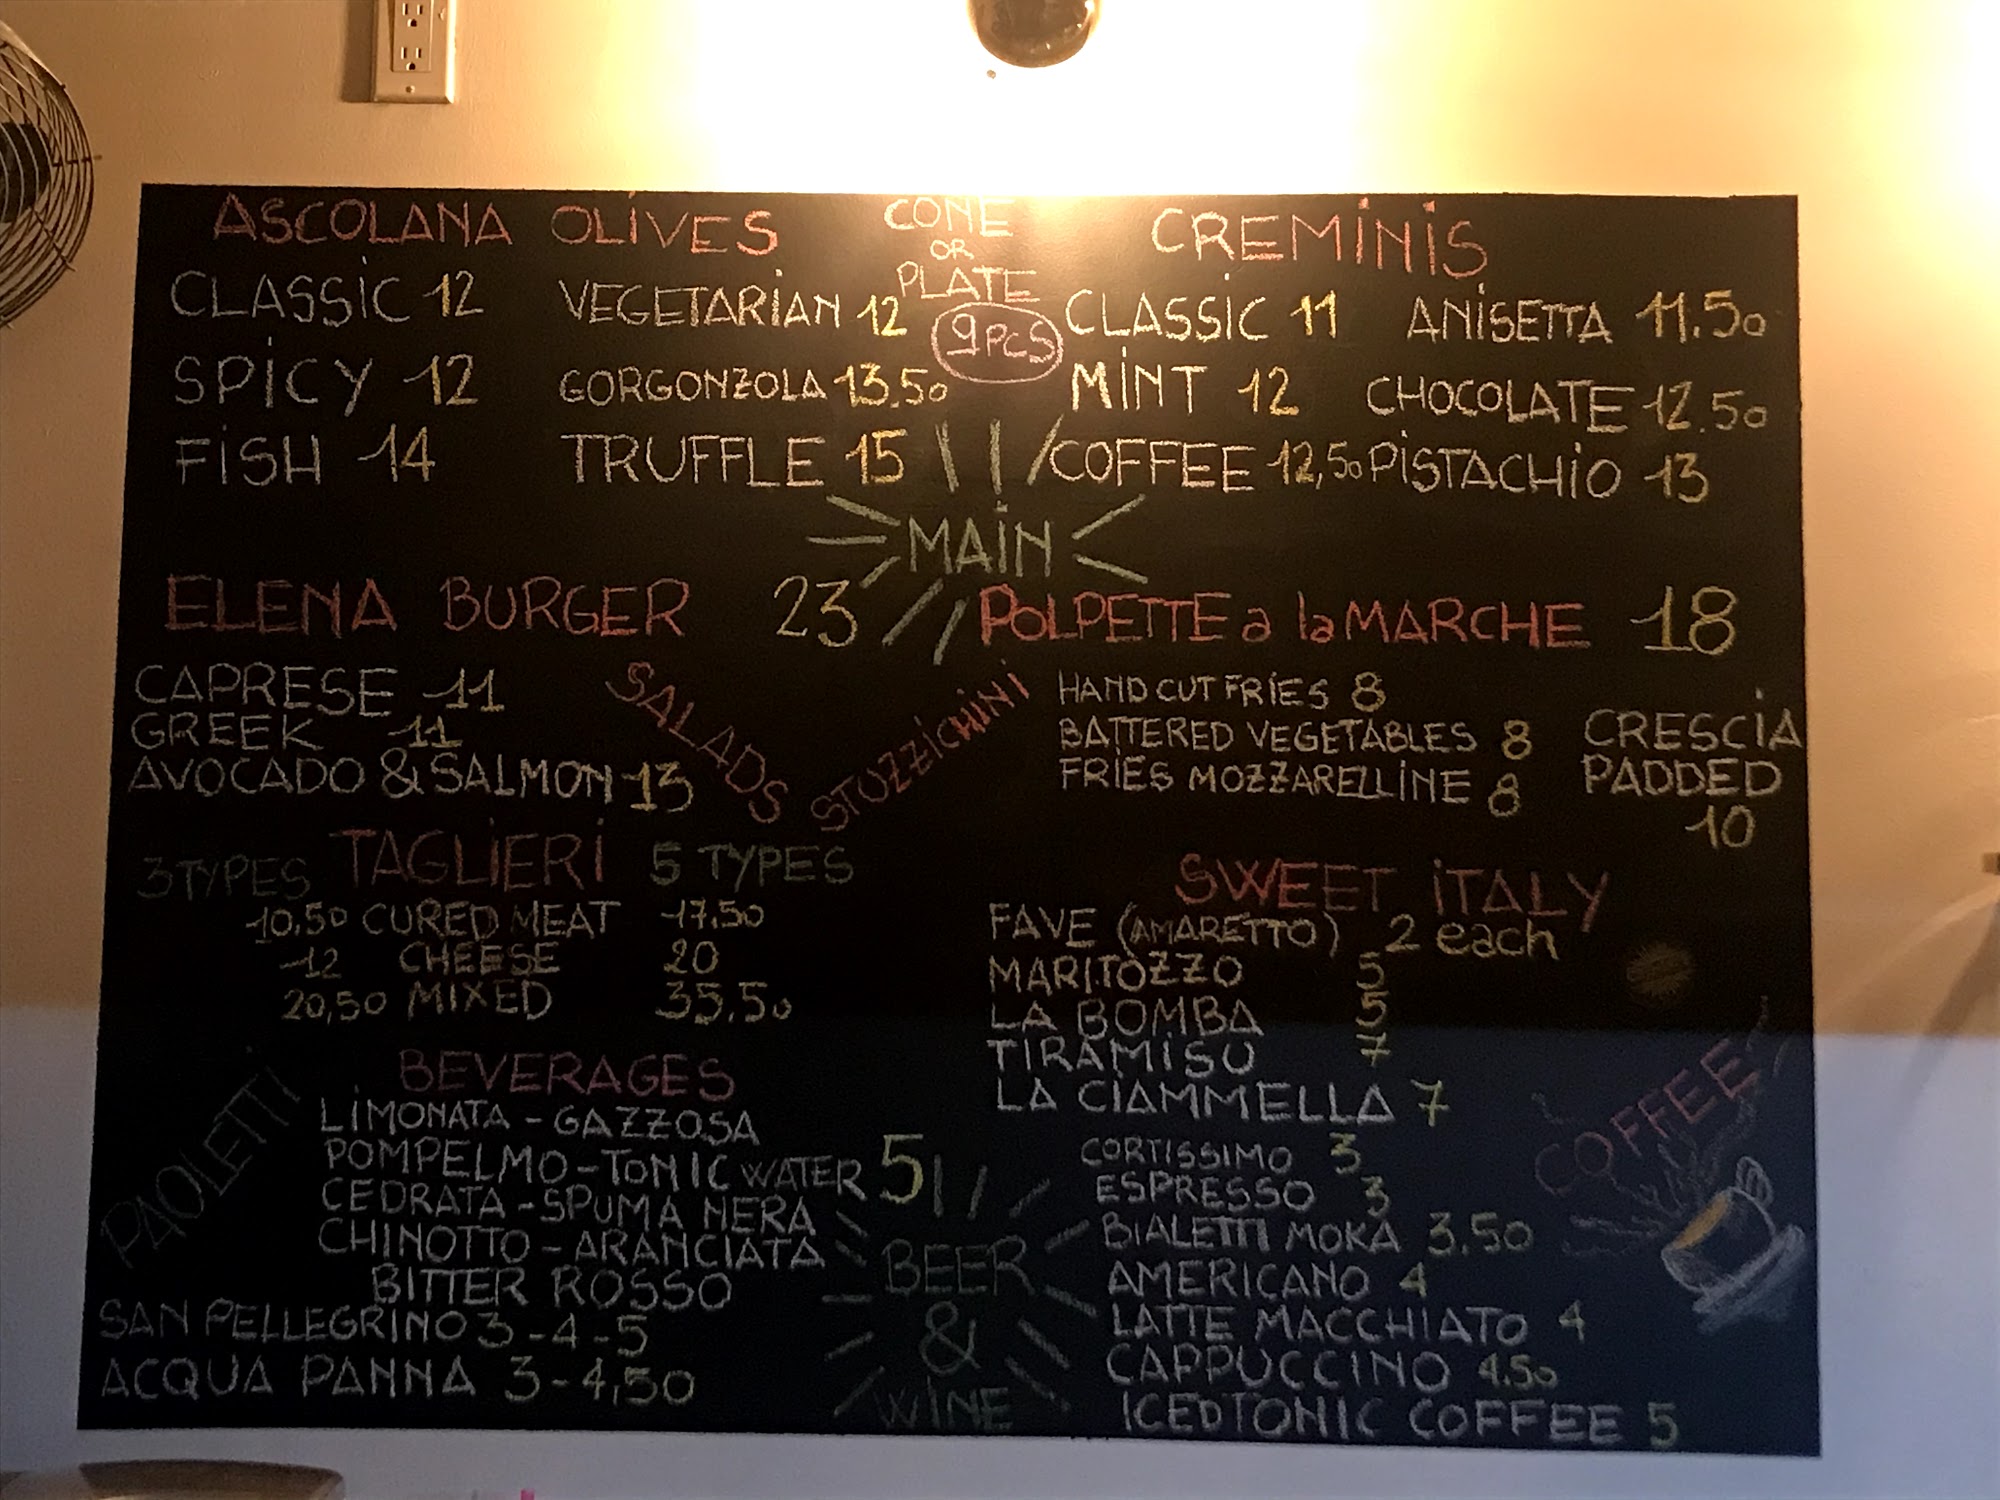 ASCOLANA OLIVES
CLASSIC 12 VEGETARIAN 12
SPICY 12 GORGONZOLA 13.50
FISH 14 TRUFFLE 15
CONE
OR
PLATE
9 PCS
CREMINIS
CLASSIC 11 ANISETTA 11.50
MINT 12 CHOCOLATE 12.50
COFFEE 12,50 PISTACHIO 13
MAIN
ELENA BURGER 23
POLPETTE a la MARCHE 18
SALADS
CAPRESE 11
GREEK 11
AVOCADO & SALMON 13
STUZZICHINI
HAND CUT FRIES 8
BATTERED VEGETABLES 8
FRIES MOZZARELLINE 8
CRESCIA
PADDED
10
3 TYPES TAGLIERI 5 TYPES
10,50 CURED MEAT 17,50
12 CHEESE 20
20,50 MIXED 35,50
SWEET ITALY
FAVE (AMARETTO) 2 each
MARITOZZO 5
LA BOMBA 5
TIRAMISU 7
LA CIAMMELLA 7
BEVERAGES
PAOLETTI
LIMONATA - GAZZOSA
POMPELMO - TONIC WATER 5
CEDRATA - SPUMA NERA
CHINOTTO - ARANCIATA
BITTER ROSSO
SAN PELLEGRINO 3 - 4 - 5
ACQUA PANNA 3 - 4,50
BEER
&
WINE
COFFEE
CORTISSIMO 3
ESPRESSO 3
BIALETTI MOKA 3.50
AMERICANO 4
LATTE MACCHIATO 4
CAPPUCCINO 4.50
ICED TONIC COFFEE 5